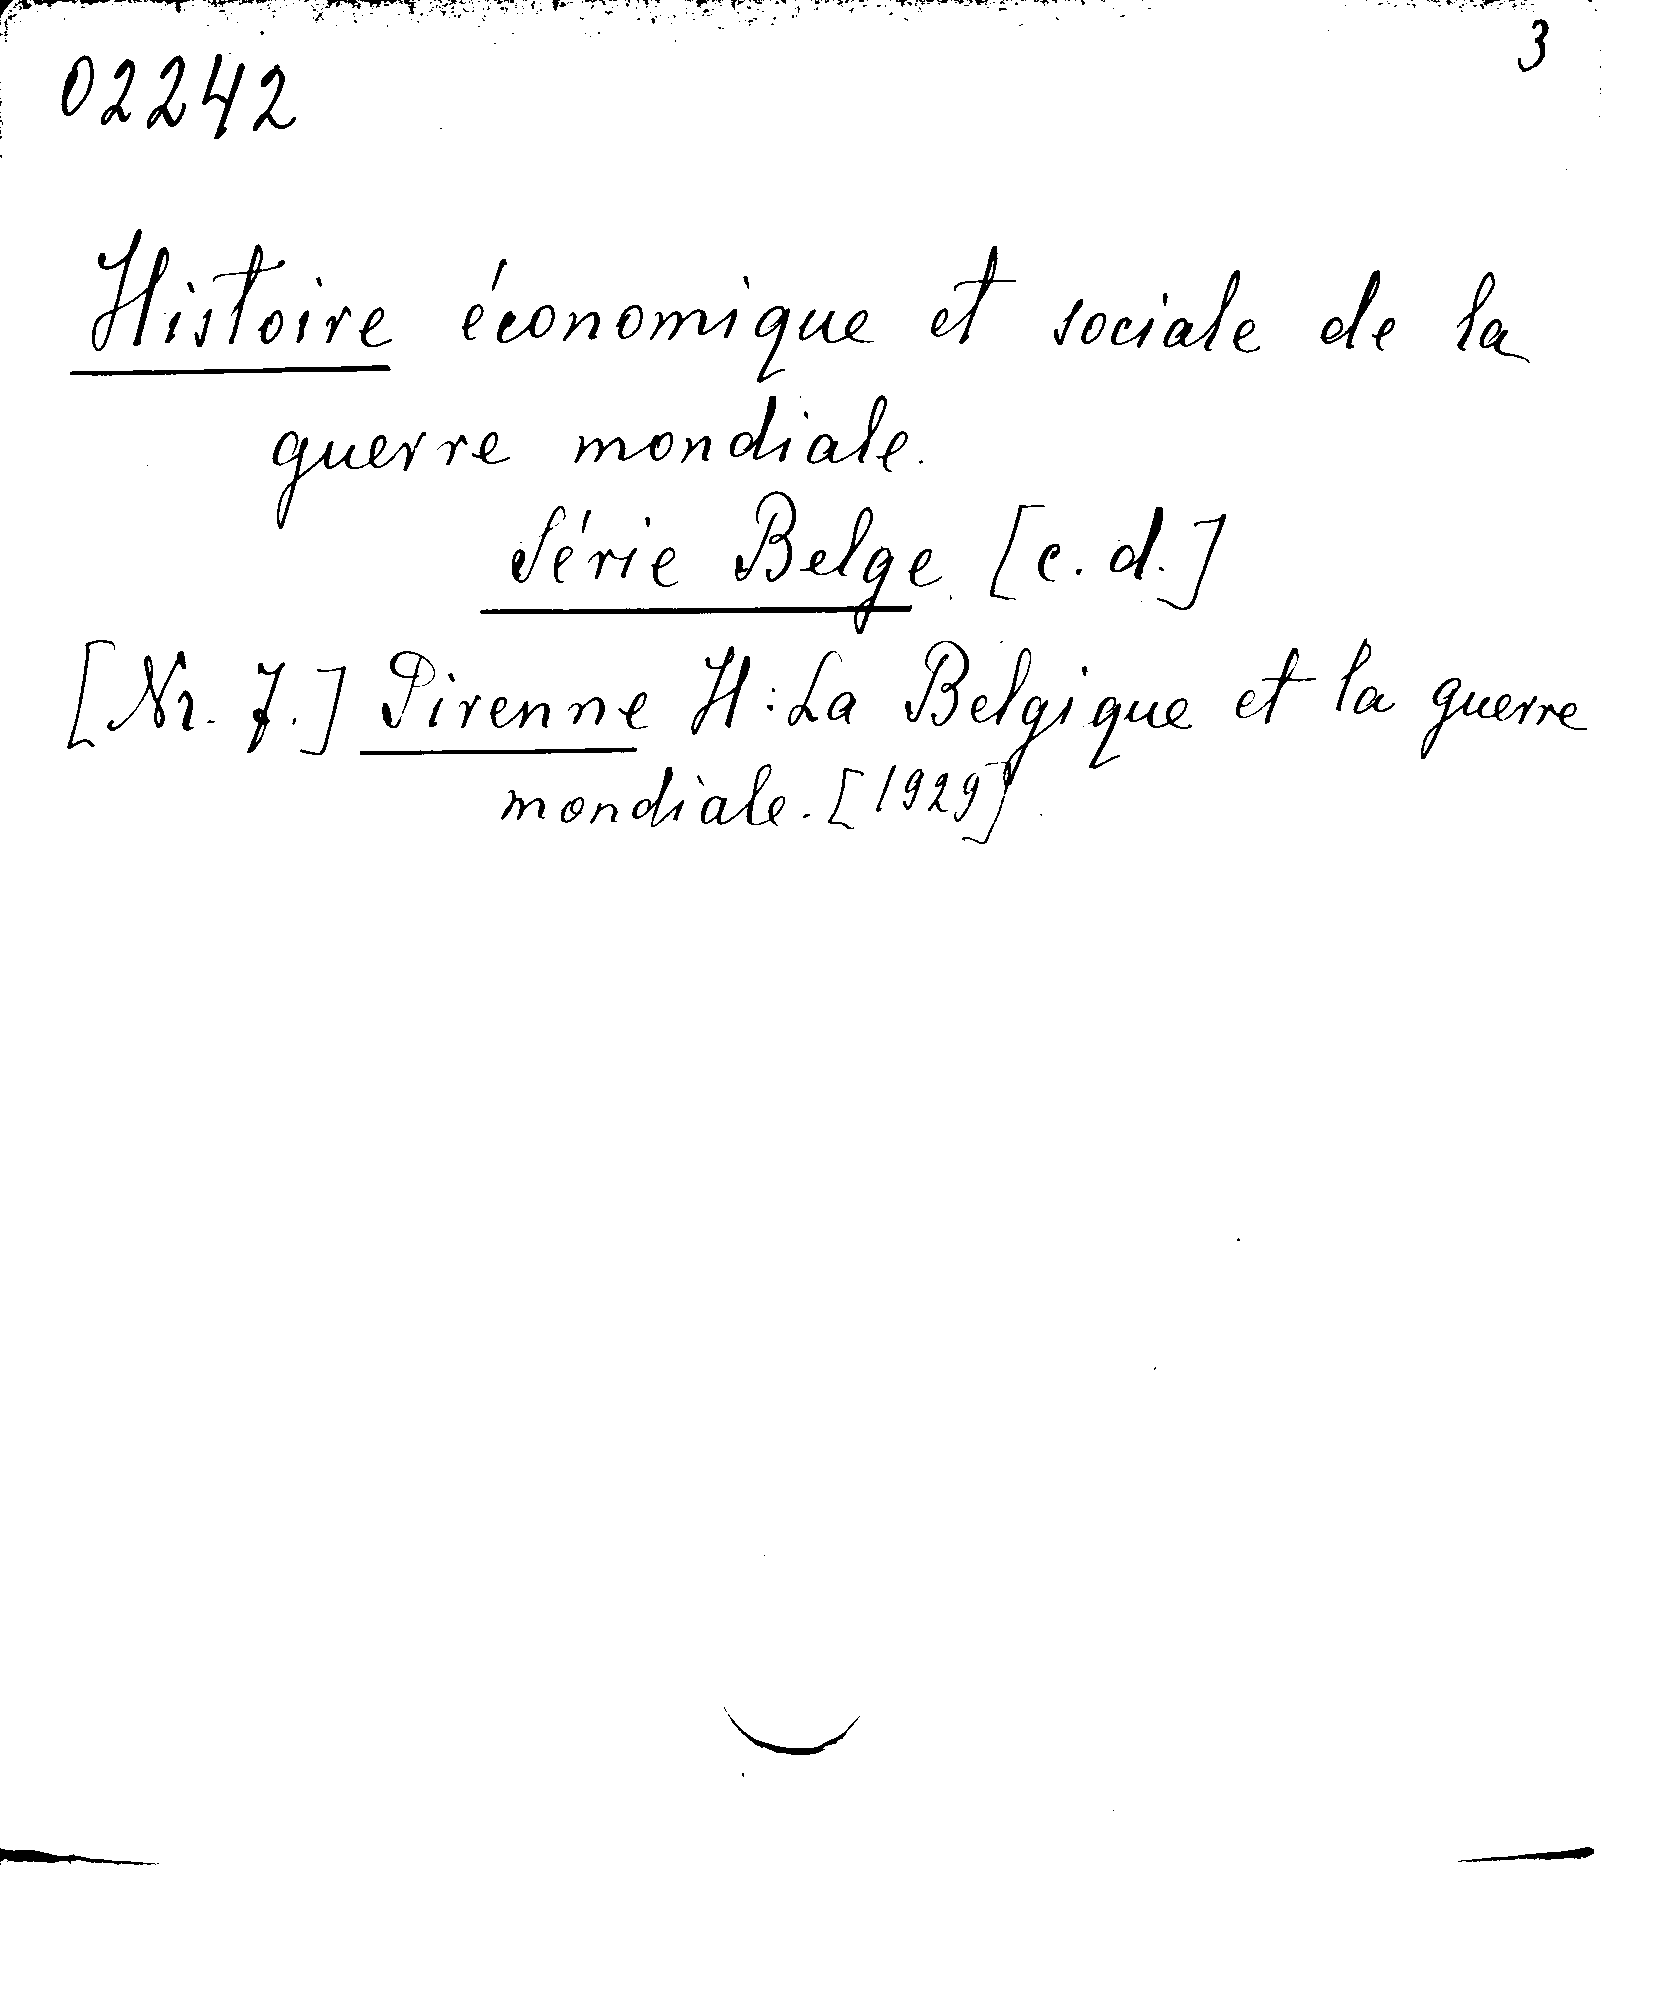 3
02242
Histoire économique et sociale de la
guerre mondiale.
Série Belge [c.d.]
[Nr. 7.] Pirenne H: La Belgique et la guerre
mondiale. [1929]